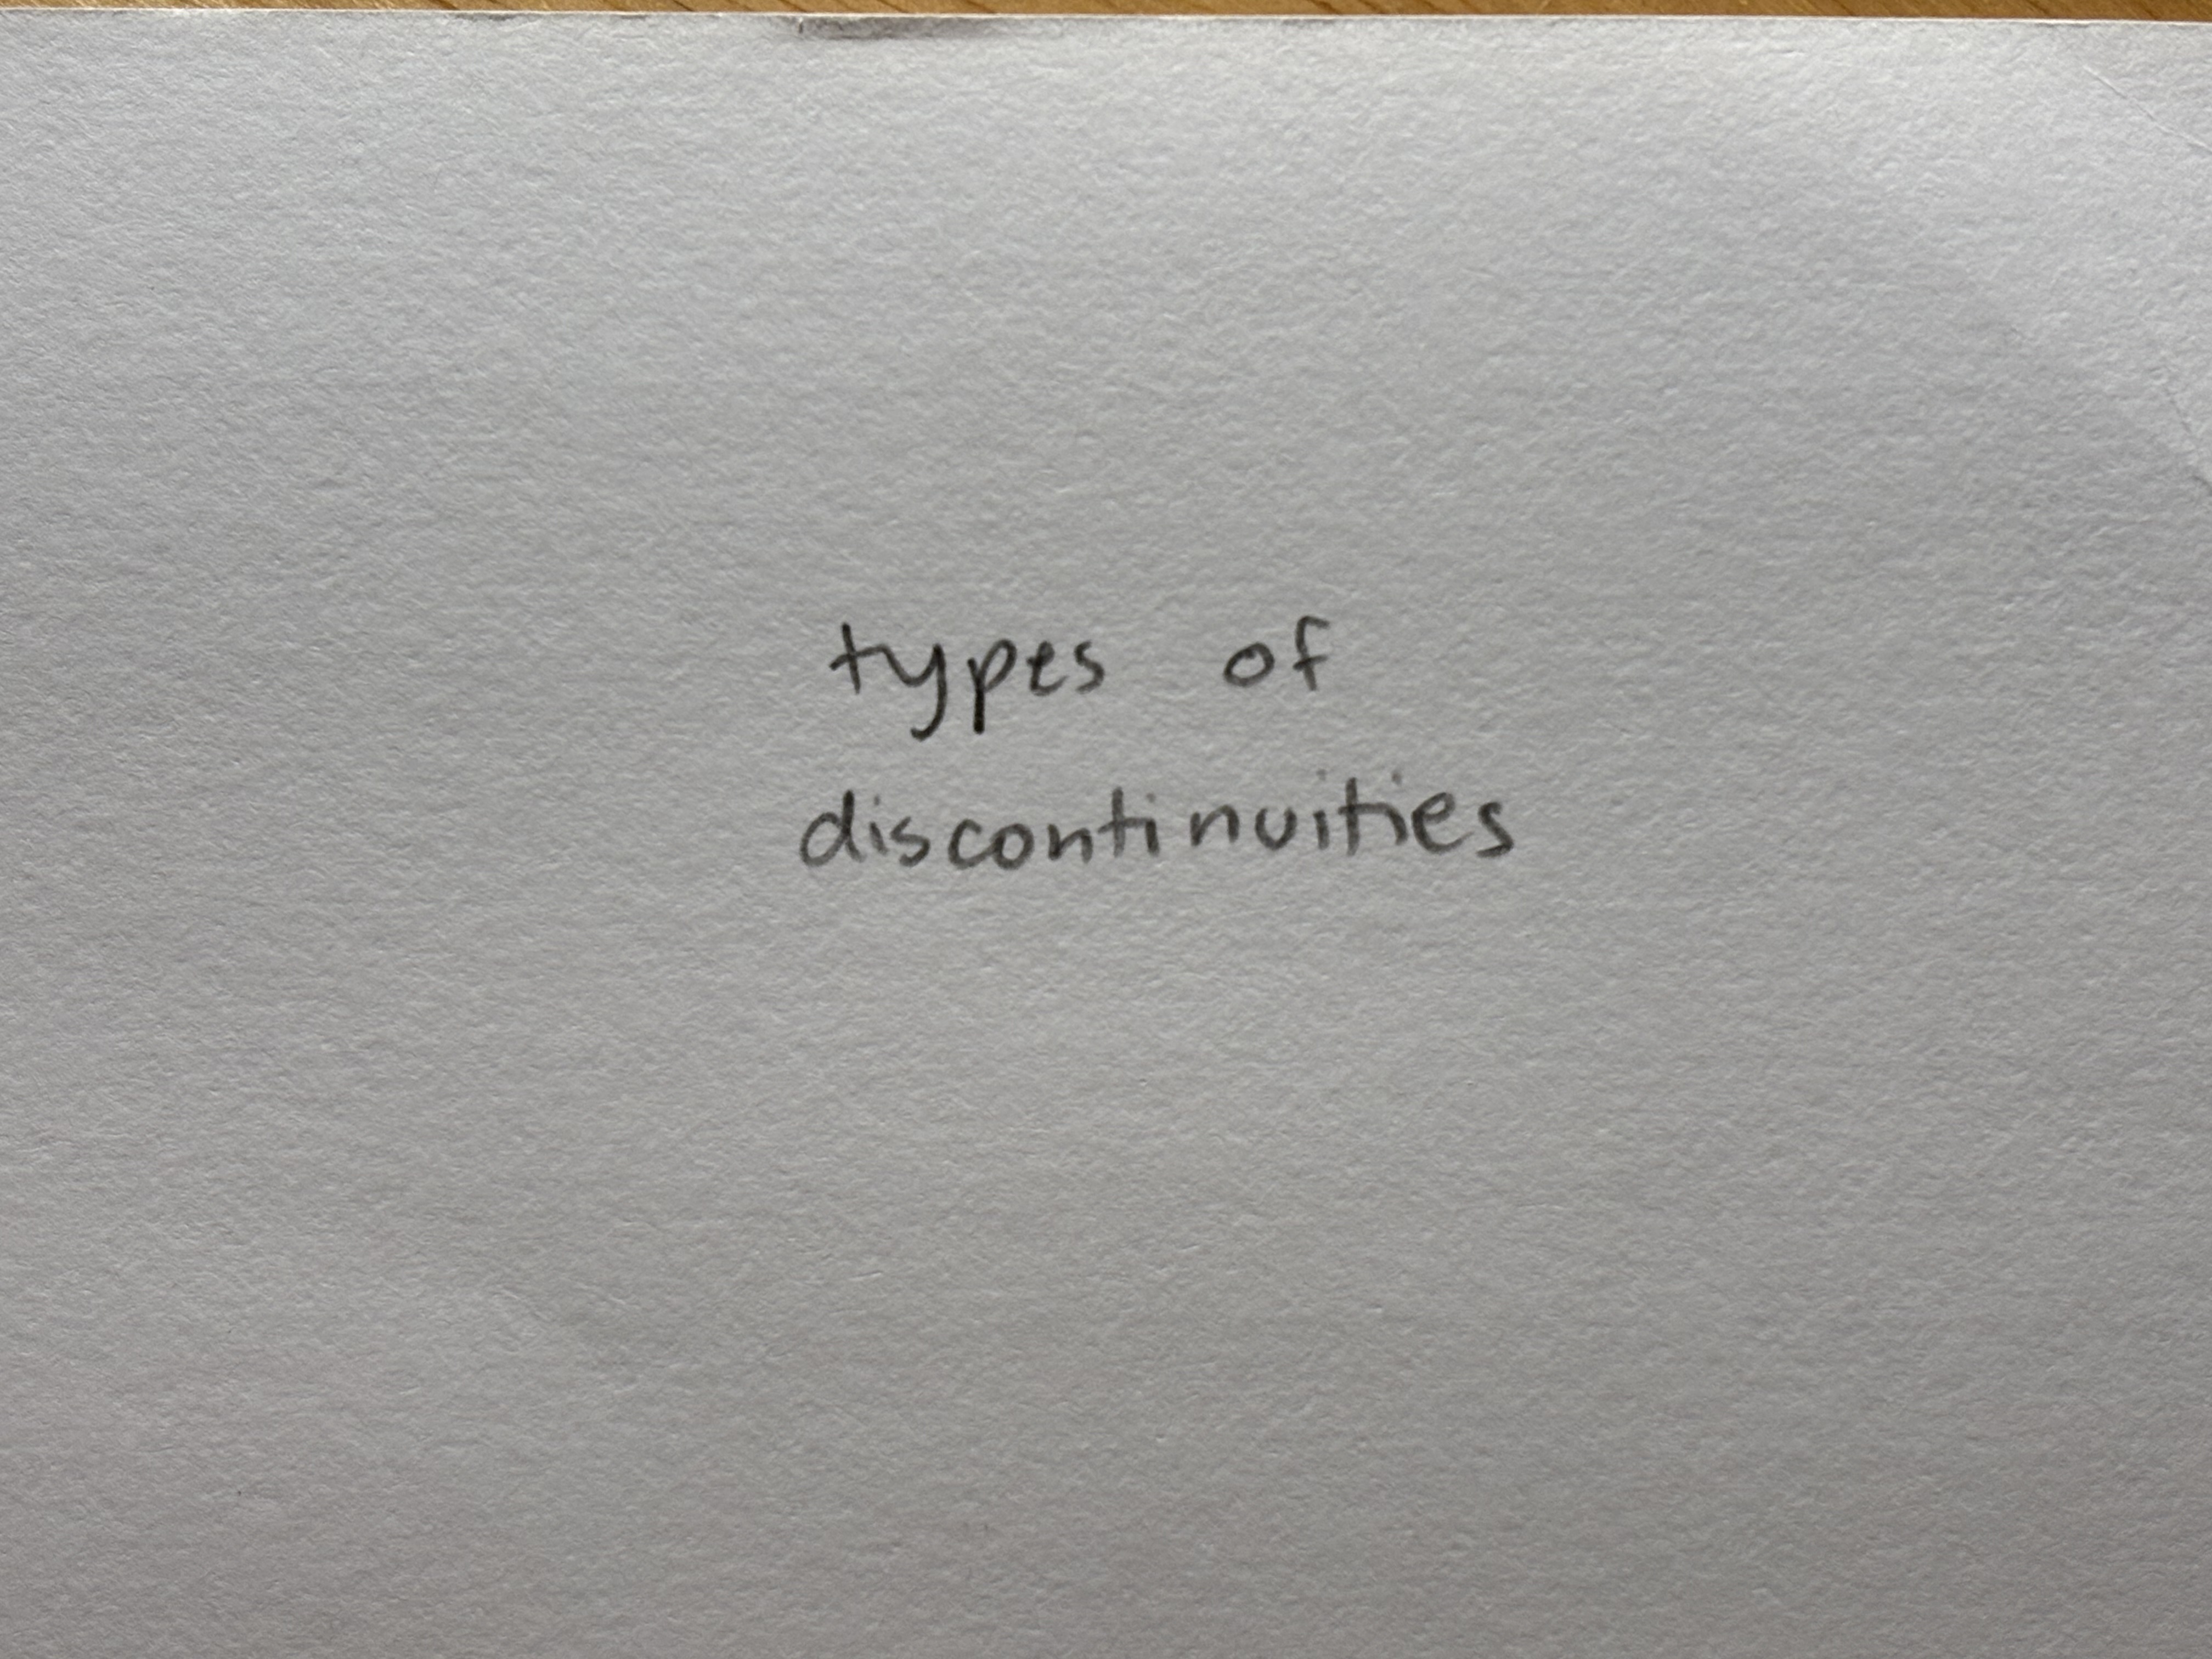 types of
discontinuities